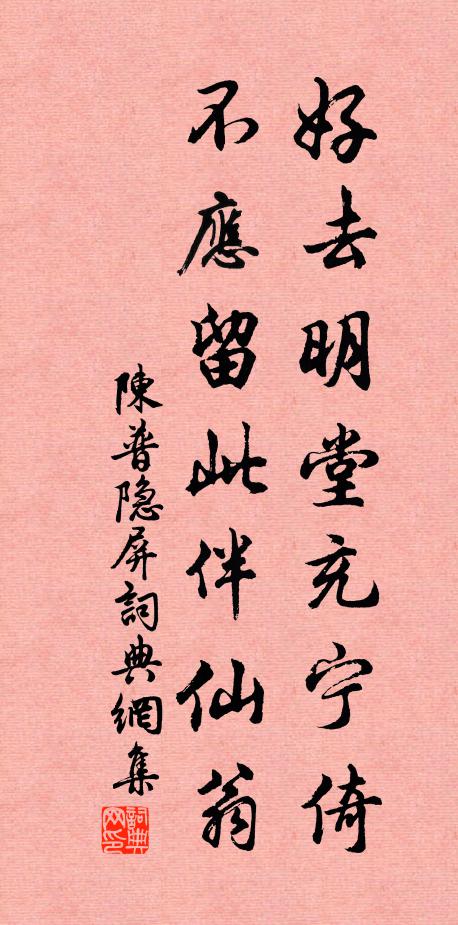 好去明堂充宁倚
不應留此伴仙翁
陳普隐屏詞典網集
詞典网印